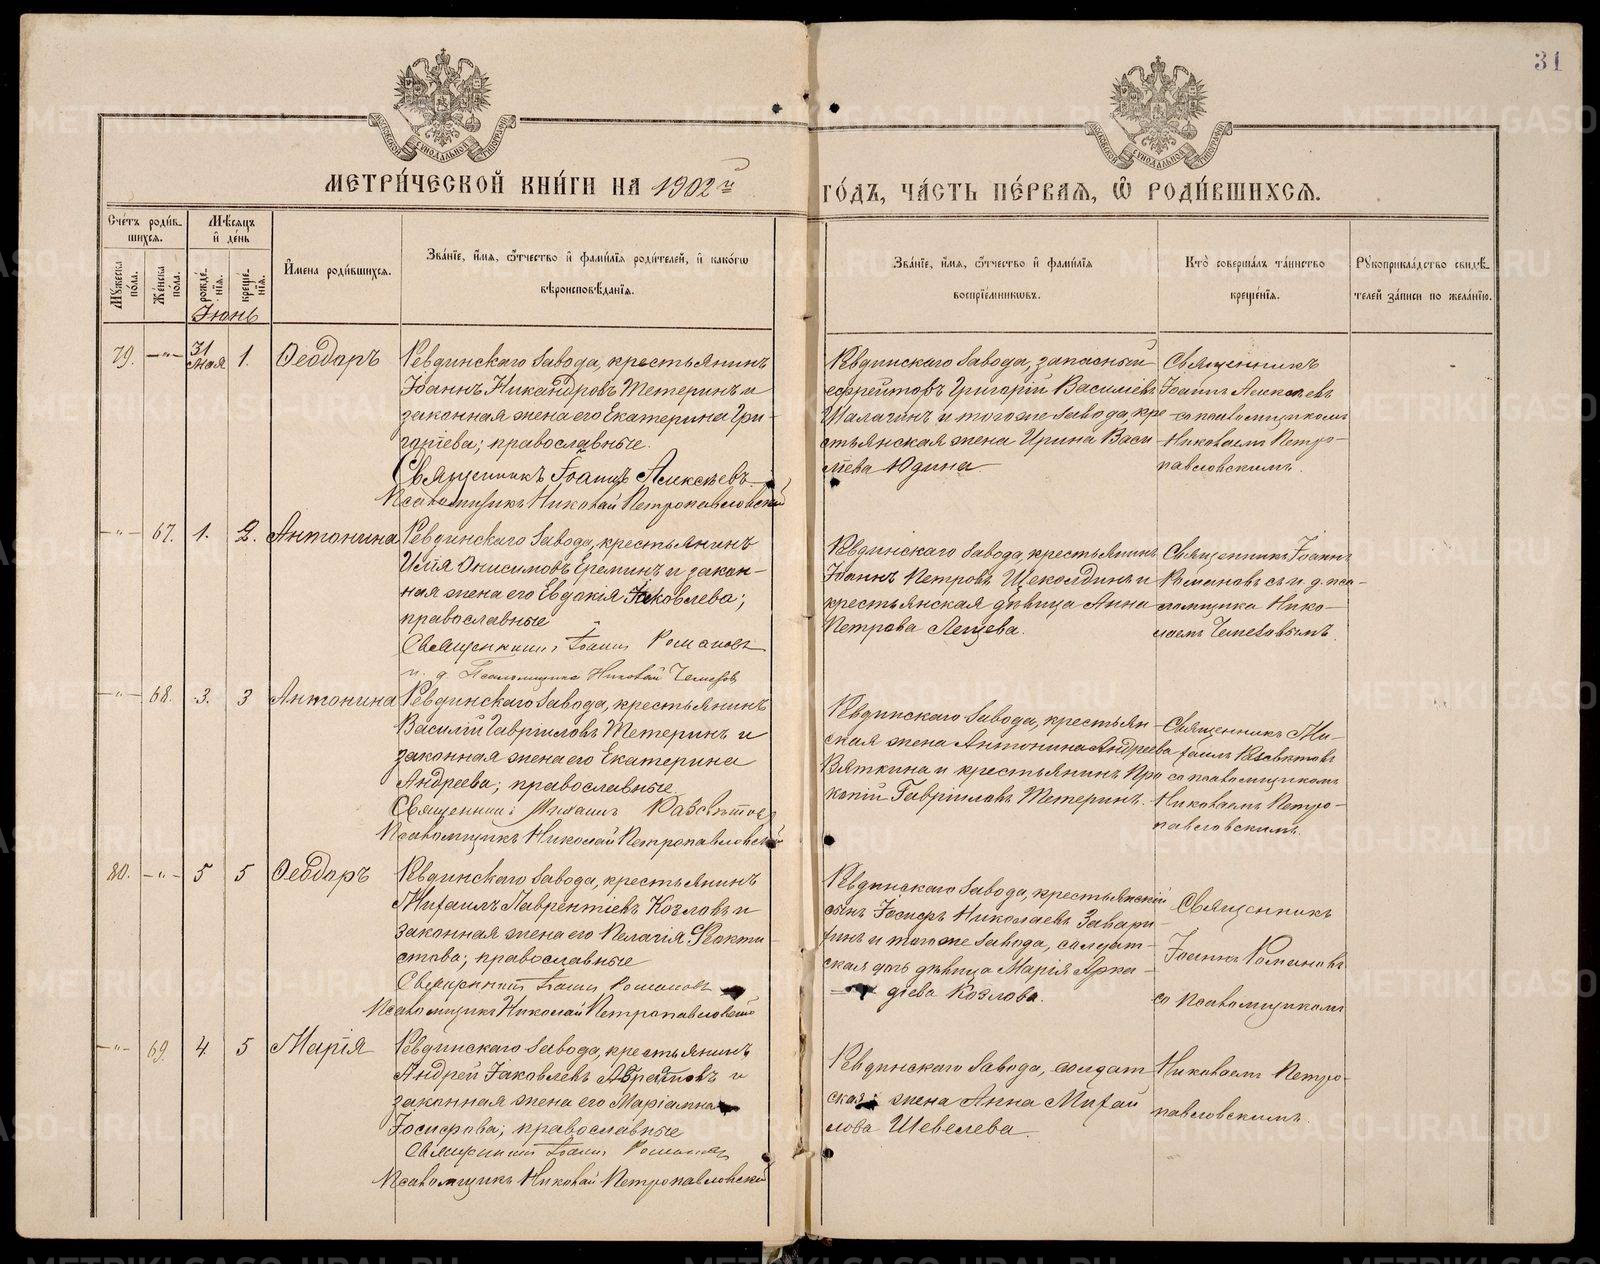 31
МОСКОВСКОЙ СѴНОДАЛЬНОЙ ТИПОГРАФІИ
МОСКОВСКОЙ СѴНОДАЛЬНОЙ ТИПОГРАФІИ
МЕТРИ́ЧЕСКОЙ КНИ́ГИ НА 1902й ГО́ДЪ, ЧА́СТЬ ПЕ́РВАЯ, Ѽ РОДИ́ВШИХСЯ.
Сче́тъ роди́в-
шихся.
Мѣсяцъ
и де́нь
Му́жеска по́ла.
Же́нска по́ла.
рожде́-нїя.
креще́-нїя.
И́мена роди́вшихся.
Зва́нїе, и́мя, ѻ́тчество и фами́лїя роди́телей, и како́гѡ
вѣроисповѣ́данїя.
Зва́нїе, и́мя, ѻ́тчество и фами́лїя
воспрїе́мникѡвъ.
Кто̀ соверша́лъ та́инство
креще́нїя.
Рукоприкла́дство свидѣ́-
телей за́писи по жела́нїю.
Іюнь
79. —„— 31 мая 1. Ѳеодоръ
Ревдинскаго завода, крестьянинъ
Іоаннъ Никандровъ Тетеринъ и
законная жена его Екатерина Гри-
горіева; православные.
Священникъ Іоаннъ Алексѣевъ
Псаломщикъ Николай Петропавловскій
Ревдинскаго завода, запасный
ефрейторъ Григорій Василіевъ
Шалагинъ и того же завода, кре
стьянская жена Ирина Васи-
ліева Юдина
Священникъ
Іоаннъ Алексѣевъ
со псаломщикомъ
Николаемъ Петро-
павловскимъ.
—„— 67. 1. 2. Антонина
Ревдинскаго завода, крестьянинъ
Илія Онисимовъ Ереминъ и закон-
ная жена его Евдокія Іаковлева;
православные
Священникъ Іоаннъ Романовъ
и. д. Псаломщика Николай Чемезовъ
Ревдинскаго завода, крестьянинъ
Іоаннъ Петровъ Щеколдинъ и
крестьянская дѣвица Анна
Петрова Лещева.
Священникъ Іоаннъ
Романовъ съ и. д. пса-
ломщика Нико-
лаемъ Чемезовымъ.
—„— 68. 3. 3 Антонина
Ревдинскаго завода, крестьянинъ
Василій Гавріиловъ Тетеринъ и
законная жена его Екатерина
Андреева; православные.
Священникъ Михаилъ Разсвѣтовъ
Псаломщикъ Николай Петропавловскій
Ревдинскаго завода, крестьян-
ская жена Антонина Андреева
Вяткина и крестьянинъ Про
копій Гавріиловъ Тетеринъ.
Священникъ Ми-
хаилъ Разсвѣтовъ
со псаломщикомъ
Николаемъ Петро-
павловскимъ.
80. —„— 5 5 Ѳеодоръ
Ревдинскаго завода, крестьянинъ
Михаилъ Лаврентіевъ Козловъ и
законная жена его Пелагія Ѳеокти-
стова; православные
Священникъ Іоаннъ Романовъ
Псаломщикъ Николай Петропавловскій
Ревдинскаго завода, крестьянскій
сынъ Іосифъ Николаевъ Завари-
хинъ и того же завода, солдат-
ская дочь дѣвица Марія Арка-
діева Козлова.
Священникъ
Іоаннъ Романовъ
со псаломщикомъ
—„— 69. 4. 5 Марія
Ревдинскаго завода, крестьянинъ
Андрей Іаковлевъ Абрамовъ и
законная жена его Маріамна
Іосифова; православные
Священникъ Іоаннъ Романовъ
Псаломщикъ Николай Петропавловскій
Ревдинскаго завода, солдат
ская жена Анна Михаи
лова Шевелева.
Николаемъ Петро-
павловскимъ.